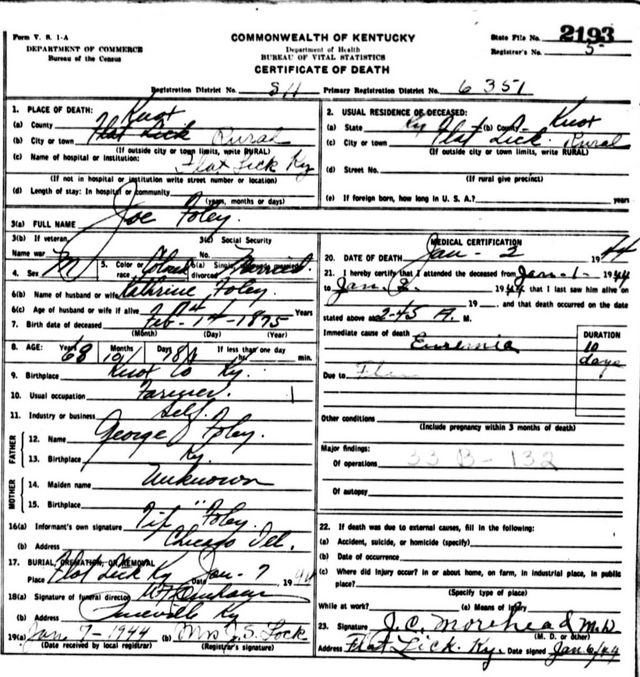 Form V. S. 1-A
DEPARTMENT OF COMMERCE
Bureau of the Census
COMMONWEALTH OF KENTUCKY
Department of Health
BUREAU OF VITAL STATISTICS
CERTIFICATE OF DEATH
State File No. 2193
Registrar's No. 5
Registration District No. Primary Registration District No. 6351
1. PLACE OF DEATH:
(a) County Knox
(b) City or town Flat Lick Rural
(If outside city or town limits, write RURAL)
(c) Name of hospital or institution: Flat Lick Ky
(If not in hospital or institution write street number or location)
(d) Length of stay: In hospital or community
(years, months or days)
2. USUAL RESIDENCE OF DECEASED:
(a) State Ky (b) County Knox
(c) City or town Flat Lick. Rural
(If outside city or town limits, write RURAL)
(d) Street No.
(If rural give precinct)
(e) If foreign born, how long in U. S. A.? years
3(a) FULL NAME Joe Foley.
3(b) If veteran, Name war
3(c) Social Security No.
4. Sex M 5. Color or race 6(a) Single divorced Married.
6(b) Name of husband or wife Kathrine Foley
6(c) Age of husband or wife if alive Years
7. Birth date of deceased Feb-1st-1875
(Month) (Day) (Year)
8. AGE: Years 68 Months Days If less than one day
hr. min.
9. Birthplace Knox Co Ky.
10. Usual occupation Farmer.
11. Industry or business Self.
FATHER
12. Name George Foley.
13. Birthplace Ky.
MOTHER
14. Maiden name Unknown
15. Birthplace "
16(a) Informant's own signature Foley.
(b) Address Chicago Ill.
17. BURIAL, CREMATION, OR REMOVAL
Place Flat Lick Ky Date Jan-7 1944
18(a) Signature of funeral director
(b) Address Pineville Ky
19(a) Jan 7-1944 (b) Mrs J. S. Lock
(Date received by local registrar) (Registrar's signature)
MEDICAL CERTIFICATION
20. DATE OF DEATH Jan-2 1944
21. I hereby certify that I attended the deceased from Jan-1- 1944
to Jan 2 1944 that I last saw him alive on
19 and that death occurred on the date
stated above at 2-45 A. M.
Immediate cause of death Euremia
DURATION
10
days
Due to Flu
Other conditions
(Include pregnancy within 3 months of death)
Major findings:
Of operations 33 B-132
Of autopsy
22. If death was due to external causes, fill in the following:
(a) Accident, suicide, or homicide (specify)
(b) Date of occurrence
(c) Where did Injury occur? In or about home, on farm, in industrial place, in public
place?
(Specify type of place)
While at work? (e) Means of Injury
23. Signature J. C. Morehead M.D
(M. D. or other)
Address Flat Lick. Ky. Date signed Jan 6/44